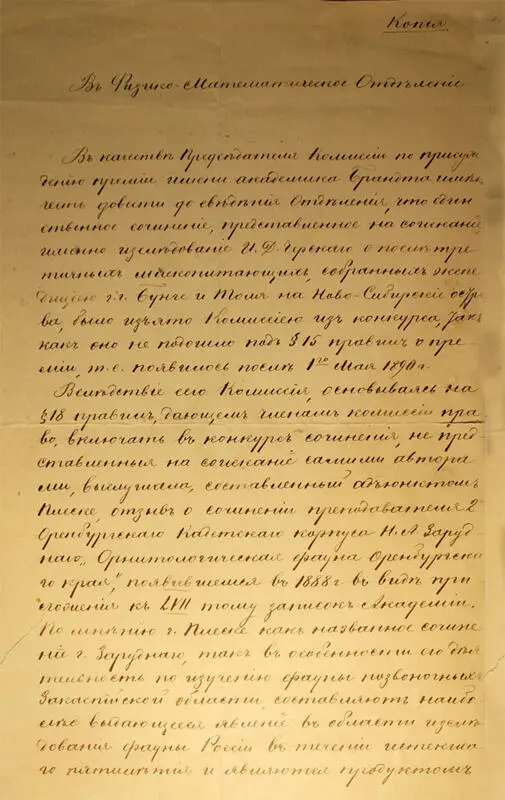 Копія
Въ Физико-Математическое Отдѣленіе
Въ качествѣ Предсѣдателя Комиссіи по присуж
денію преміи имени академика Брандта имѣю
честь довести до свѣдѣнія Отдѣленія, что един
ственное сочиненіе, представленное на соисканіе
именно изслѣдованіе И. Д. Черскаго о послѣтре
тичныхъ млекопитающихъ, собранныхъ экспе
дицією г.г. Бунге и Толя на Ново-Сибирскіе остро
ва, было изъято Комиссіею изъ конкурса, такъ
какъ оно не подошло подъ § 15 правилъ о пре
міи, т.е. появилось послѣ 1го Мая 1890 г.
Вслѣдствіе сего Комиссія, основываясь на
§ 18 правилъ, дающемъ членамъ комиссіи пра
во, включать въ конкурсъ сочиненія, не пред
ставленныя на соисканіе самими автора
ми, выслушала, составленный адъюнктомъ
Плеске, отзывъ о сочиненіи преподавателя 2
Оренбургскаго Кадетскаго корпуса Н. А Заруд
наго „Орнитологическая фауна Оренбургска
го края", появившемся въ 1888 г въ видѣ при
ложенія къ LVII тому записокъ Академіи.
По мнѣнію г. Плеске какъ названное сочине
ніе г. Заруднаго, такъ въ особенности его дѣя
тельность по изученію фауны позвоночныхъ
Закаспійской области, составляютъ наибо
лѣе выдающееся явленіе въ области изслѣ
дованія фауны Россіи въ теченіи истекша
го пятилѣтія и являются продуктомъ